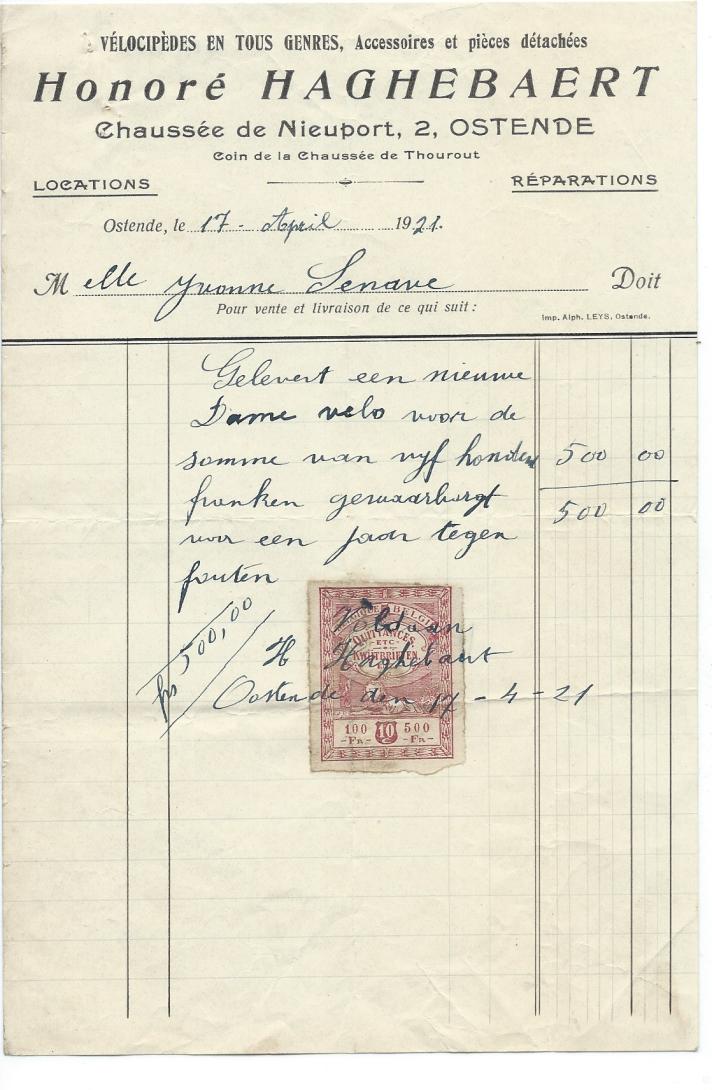 VÉLOCIPÈDES EN TOUS GENRES, Accessoires et pièces détachées
Honoré HAGHEBAERT
Chaussée de Nieuport, 2, OSTENDE
Coin de la Chaussée de Thourout
LOCATIONS RÉPARATIONS
Ostende, le 17 - April 1921.
Melle Yvonne Senave Doit
Pour vente et livraison de ce qui suit :
Imp. Alph. LEYS, Ostende.
Gelevert een nieuwe
Dame velo voor de
somme van vyf honderd 500 00
franken gewaarborgt 500 00
voor een jaar tegen
fouten
frs 500,00
BELGIQUE BELGIË
Voldaan
QUITTANCES
ETC
KWIJTBRIEVEN
H Haghebaert
Oostende den 17 - 4 - 21
100 10 500
-FR- -FR-